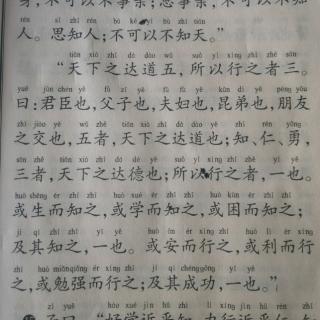 身，不可以不事亲；思事亲，不可以不知
人。思知人；不可以不知天。”
“天下之达道五，所以行之者三。
曰：君臣也，父子也，夫妇也，昆弟也，朋友
之交也，五者，天下之达道也；知、仁、勇，
三者，天下之达德也；所以行之者，一也。
或生而知之，或学而知之，或困而知之；
及其知之，一也。或安而行之，或利而行
之，或勉强而行之；及其成功，一也。”
子曰：“好学近乎知，力行近乎仁，知